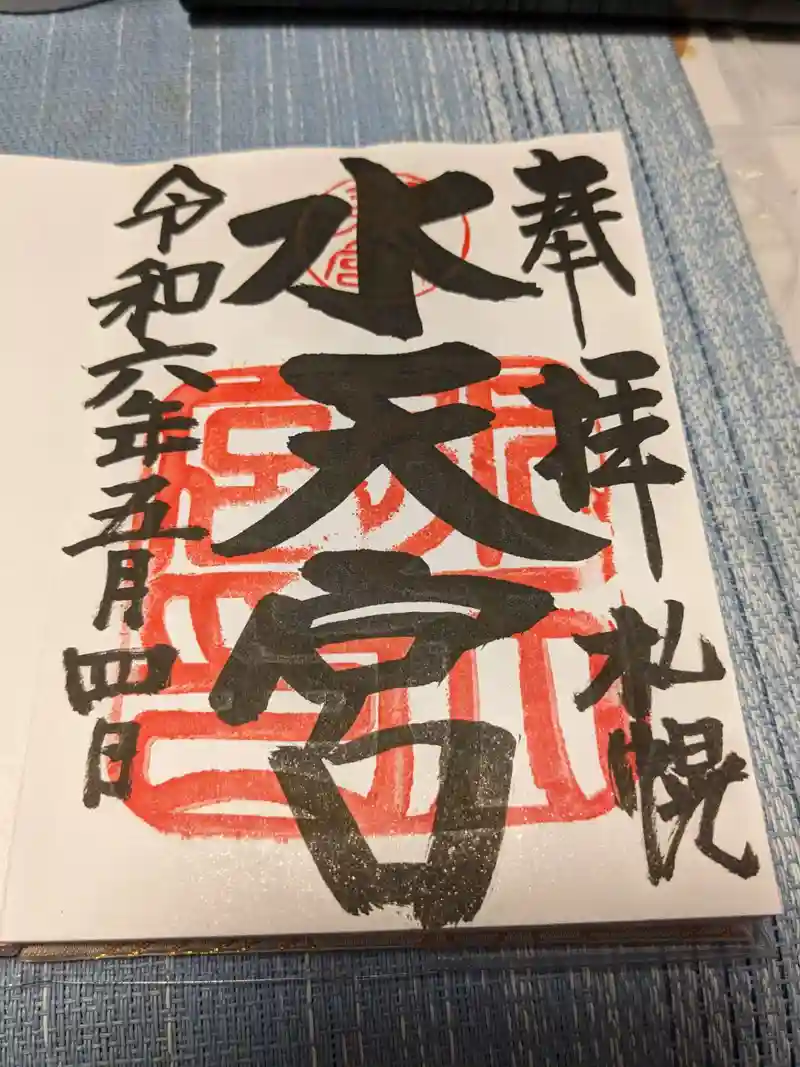 奉拝 札幌
水天宮
令和六年五月四日